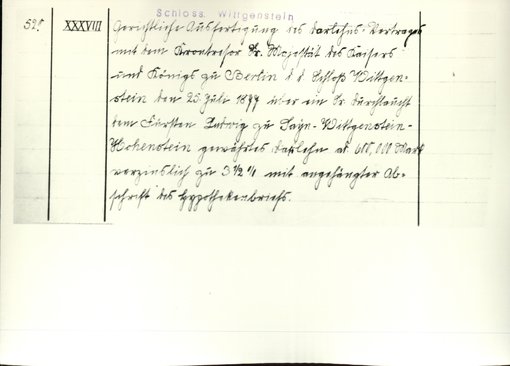 Schloss Wittgenstein
XXXVIII
Gerichtliche Ausfertigung des Darlehns-Vertrages
mit dem Krontresor Sr. Majestät des Kaisers
und Königs zu Berlin d. d. Schloß Wittgen-
stein den 25. Juli 1877 über ein Sr. Durchlaucht
dem Fürsten Ludwig zu Sayn-Wittgenstein-
Hohenstein gewährtes Darlehn ad 600,000 Mark
verzinslich zu 3 1/2 % mit angehängter Ab-
schrift des Hypothekenbriefs.